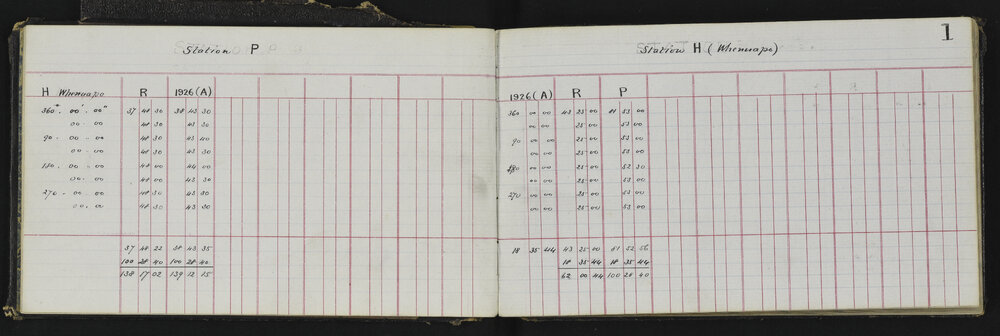 Station P
H Whenuapo R 1926 (A)
360° 00' 00" 37 48 30 38 43 30
00 00 48 30 43 30
90 00 00 48 30 43 40
00 00 48 30 43 30
180 00 00 48 00 44 00
00 00 48 00 43 30
270 00 00 48 30 43 30
00 00 48 30 43 30
37 48 22 38 43 35
100 28 40 100 28 40
138 17 02 139 12 15
1
Station H (Whenuapo)
1926 (A) R P
360 00 00 43 25 00 81 53 00
00 00 25 00 53 00
90 00 00 25 00 53 00
00 00 25 00 53 00
180 00 00 25 00 52 30
00 00 25 00 53 00
270 00 00 25 00 53 00
00 00 25 00 53 00
18 35 44 43 25 00 81 52 56
18 35 44 18 35 44
62 00 44 100 28 40